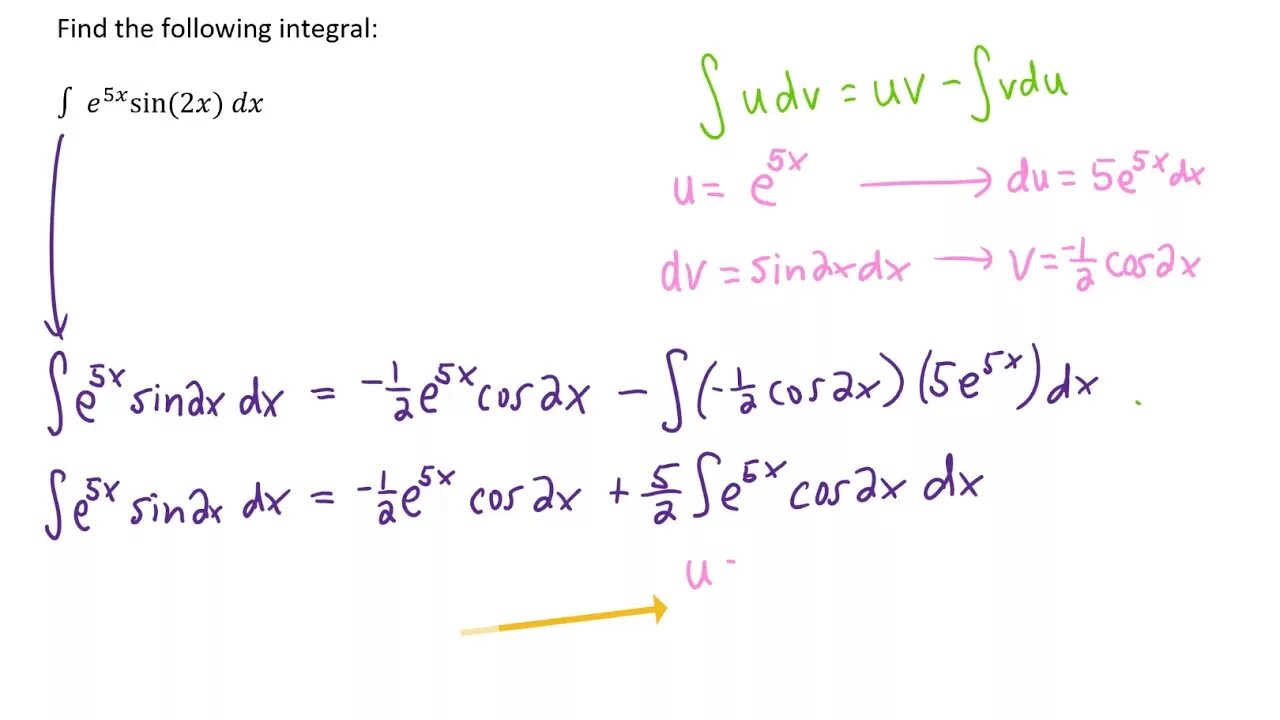 Find the following integral:
∫ e^{5x} sin(2x) dx
∫ u dv = uv - ∫ v du
u = e^{5x} → du = 5e^{5x} dx
dv = sin2x dx → v = -1/2 cos2x
∫ e^{5x} sin2x dx = -1/2 e^{5x} cos2x - ∫ (-1/2 cos2x)(5e^{5x}) dx .
∫ e^{5x} sin2x dx = -1/2 e^{5x} cos2x + 5/2 ∫ e^{5x} cos2x dx
u -